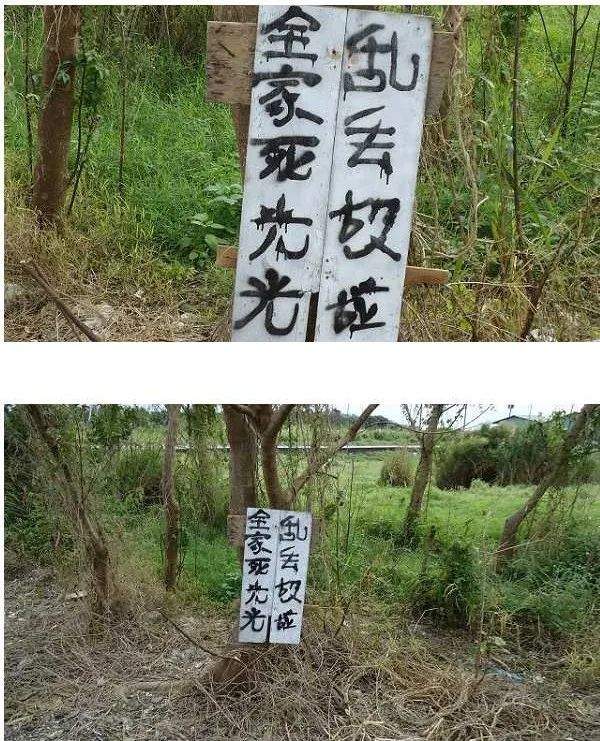 乱丢圾垃
全家死光光
乱丢圾垃
全家死光光